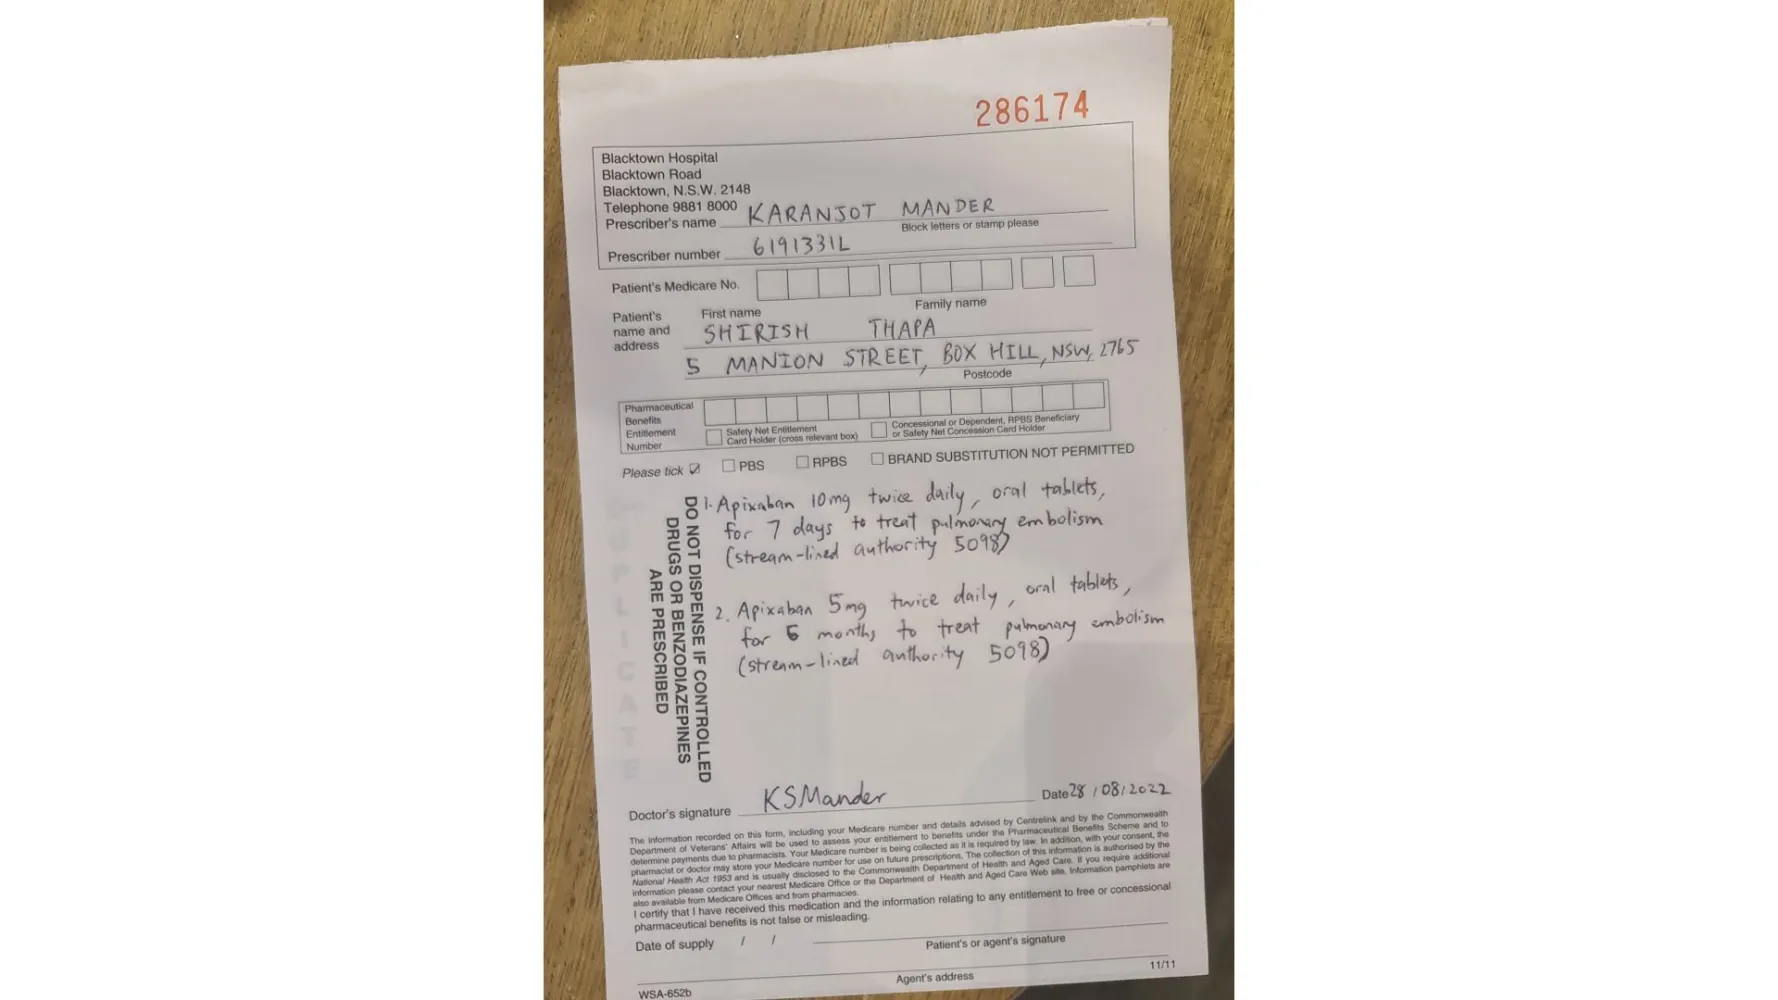 286174
Blacktown Hospital
Blacktown Road
Blacktown, N.S.W. 2148
Telephone 9881 8000
Prescriber's name KARANJOT MANDER
Block letters or stamp please
Prescriber number 6191331L
Patient's Medicare No.
Patient's name and address
First name Family name
SHIRISH THAPA
5 MANION STREET, BOX HILL, NSW, 2765
Postcode
Pharmaceutical Benefits Entitlement Number
Safety Net Entitlement Card Holder (cross relevant box)
Concessional or Dependent, RPBS Beneficiary or Safety Net Concession Card Holder
Please tick PBS RPBS BRAND SUBSTITUTION NOT PERMITTED
DO NOT DISPENSE IF CONTROLLED
DRUGS OR BENZODIAZEPINES
ARE PRESCRIBED
1. Apixaban 10mg twice daily, oral tablets,
for 7 days to treat pulmonary embolism
(stream-lined authority 5098)
2. Apixaban 5mg twice daily, oral tablets,
for 6 months to treat pulmonary embolism
(stream-lined authority 5098)
Doctor's signature KSMander Date 28/08/2022
The information recorded on this form, including your Medicare number and details advised by Centrelink and by the Commonwealth
Department of Veterans' Affairs will be used to assess your entitlement to benefits under the Pharmaceutical Benefits Scheme and to
determine payments due to pharmacists. Your Medicare number is being collected as it is required by law. In addition, with your consent, the
pharmacist or doctor may store your Medicare number for use on future prescriptions. The collection of this information is authorised by the
National Health Act 1953 and is usually disclosed to the Commonwealth Department of Health and Aged Care. If you require additional
information please contact your nearest Medicare Office or the Department of Health and Aged Care Web site. Information pamphlets are
also available from Medicare Offices and from pharmacies.
I certify that I have received this medication and the information relating to any entitlement to free or concessional
pharmaceutical benefits is not false or misleading.
Date of supply / /
Patient's or agent's signature
Agent's address
11/11
WSA-652b